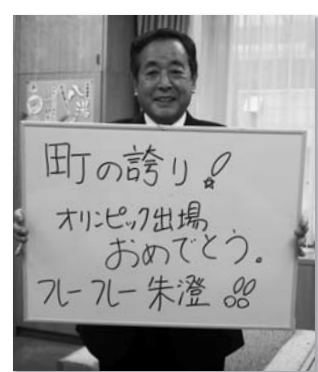 町の誇り!
オリンピック出場
おめでとう。
フレーフレー朱澄!!